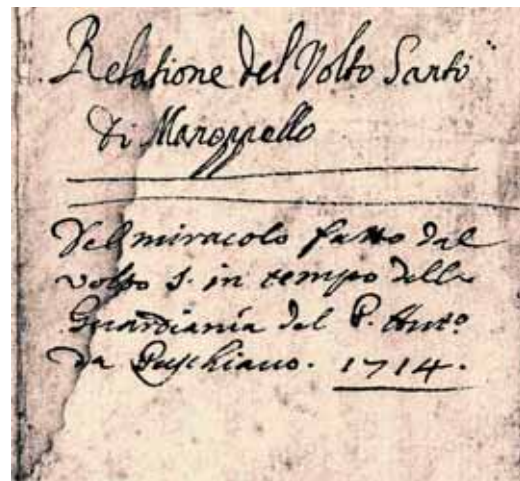 Relatione del Volto Santo
di Manoppello
Del miracolo fatto dal
volto S. in tempo della
Guardiania del P. Ant.º
da Poschiano. 1714.